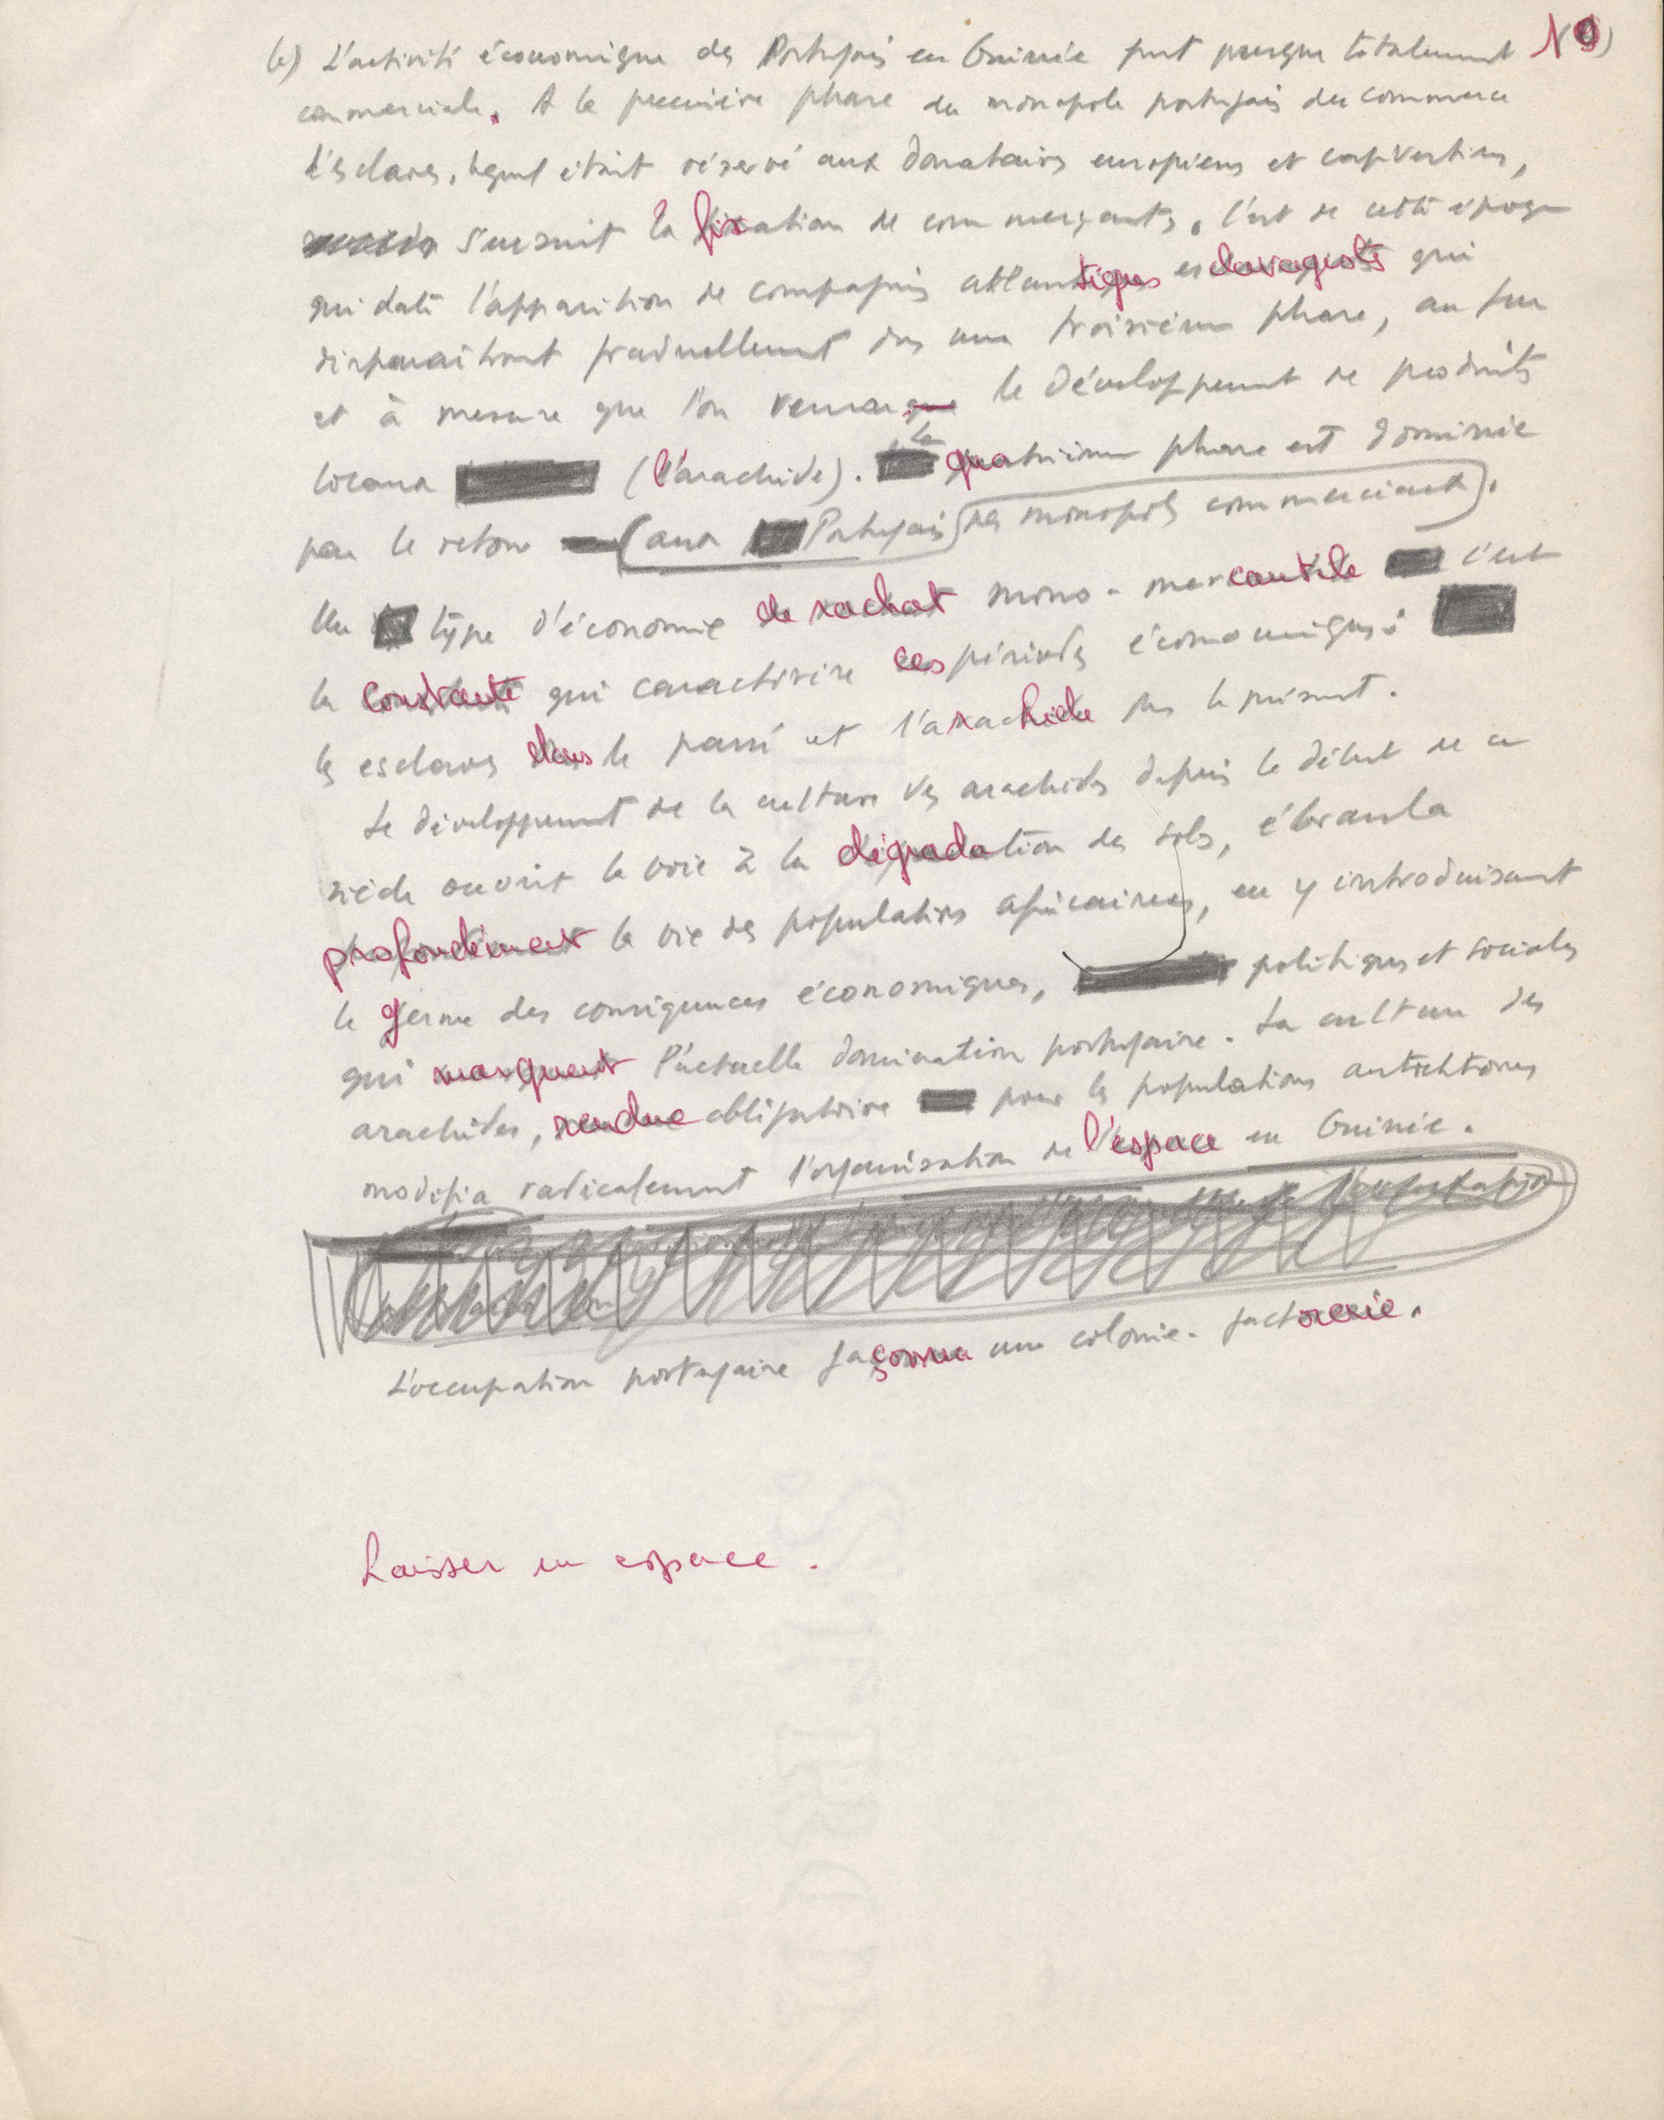 L'activité économique des Portugais en Guinée fut presque totalement
commerciale. A la première phase du monopole portugais du commerce
d'esclaves, lequel était réservé aux donataires européens et capverdiens,
s'ensuit la fixation de commerçants. C'est de cette époque
qui date l'apparition de compagnies atlantiques esclavagistes qui
disparaitront graduellement dans une troisième phase, au fur
et à mesure que l'on remarque le développement de produits
locaux (l'arachide). la quatrième phase est dominée
par le retour (aux Portugais) des monopoles commerciaux).
Un type d'économie de rachat mono-mercantile c'est
la constante qui caractérise ces périodes économiques:
les esclaves dans le passé et l'arachide dans le présent.
Le développement de la culture des arachides depuis le début de ce
siècle ouvrit la voie à la dégradation des sols, ébranla
profondément la vie des populations africaines, en y introduisant
le germe des conséquences économiques, politiques et sociales
qui marquent l'actuelle domination portugaise. La culture des
arachides, rendue obligatoire pour les populations autochtones
modifia radicalement l'organisation de l'espace en Guinée.
L'occupation portugaise façonna une colonie-factorerie.
Laisser un espace.